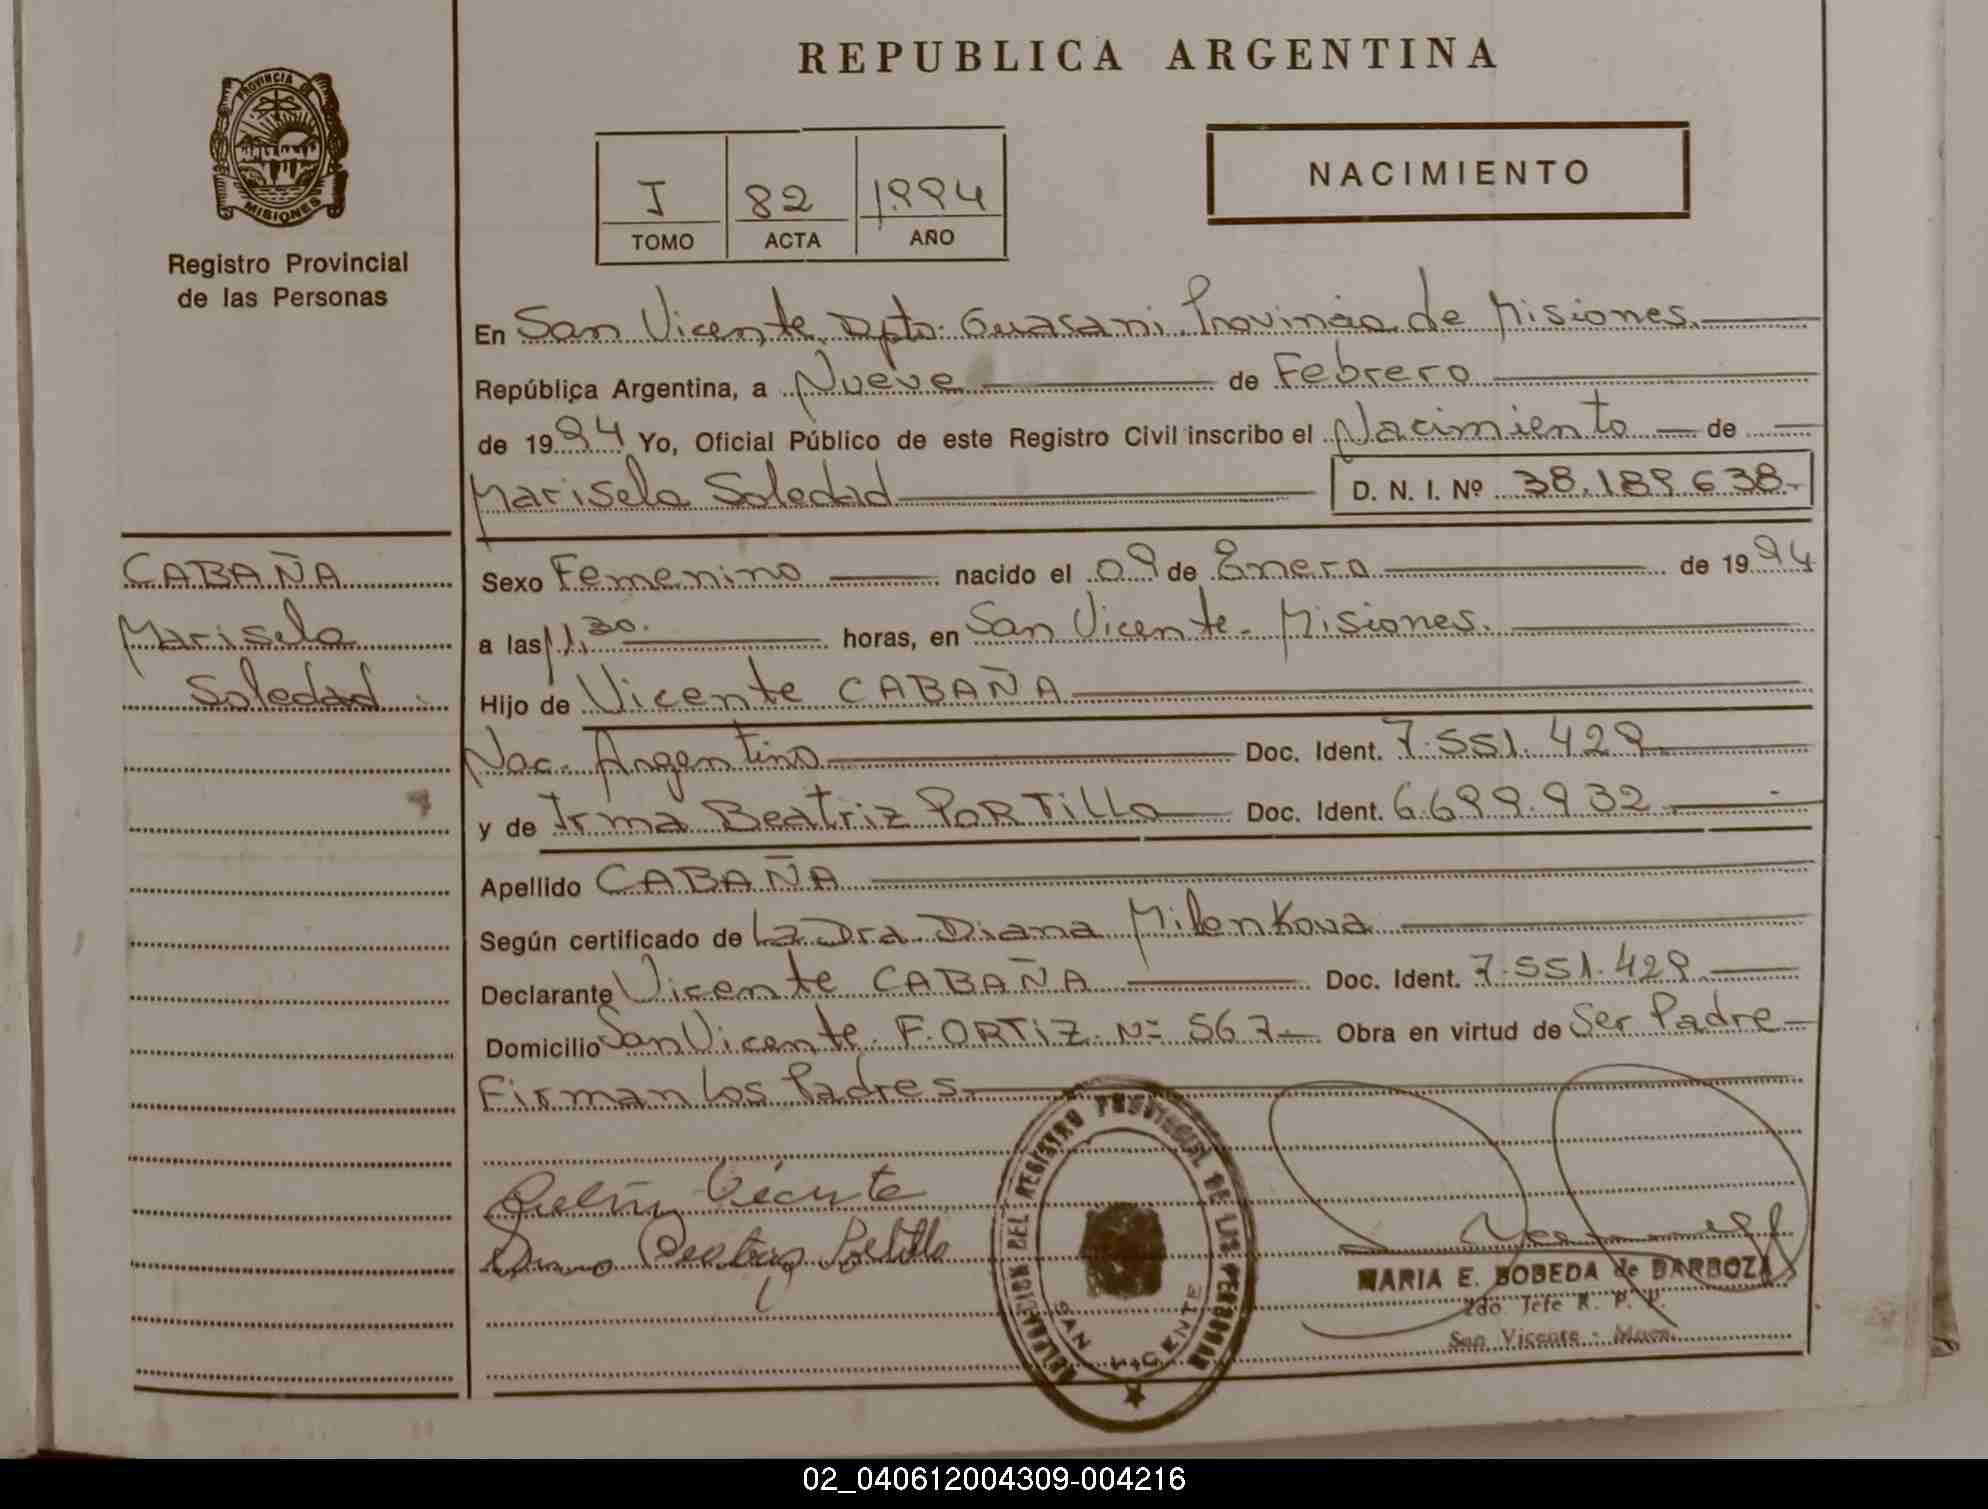 REPUBLICA ARGENTINA
PROVINCIA DE
MISIONES
Registro Provincial
de las Personas
I 82 1994
TOMO ACTA AÑO
NACIMIENTO
En San Vicente, Dpto. Guarani Provincia de Misiones.
República Argentina, a Nueve de Febrero
de 1994 Yo, Oficial Público de este Registro Civil inscribo el Nacimiento de
Marisela Soledad D. N. I. Nº 38.189.638.-
CABAÑA
Marisela
Soledad.
Sexo Femenino nacido el 09 de Enero de 1994
a las 11,30. horas, en San Vicente - Misiones.
Hijo de Vicente CABAÑA
Nac. Argentino Doc. Ident. 7.551.429
y de Irma Beatriz PORTILLO Doc. Ident. 6.699.932
Apellido CABAÑA
Según certificado de La Dra. Diana Milenkova
Declarante Vicente CABAÑA Doc. Ident. 7.551.429
Domicilio San Vicente F. ORTIZ Nº 567 Obra en virtud de Ser Padre
Firman los Padres
Vicente
Portillo
DEL REGISTRO PROVINCIAL DE LAS PERSONAS
SAN VICENTE
MARIA E. BOBEDA de BARBOZA
2do Jefe R. P. P.
San Vicente - Mnes.
02_040612004309-004216